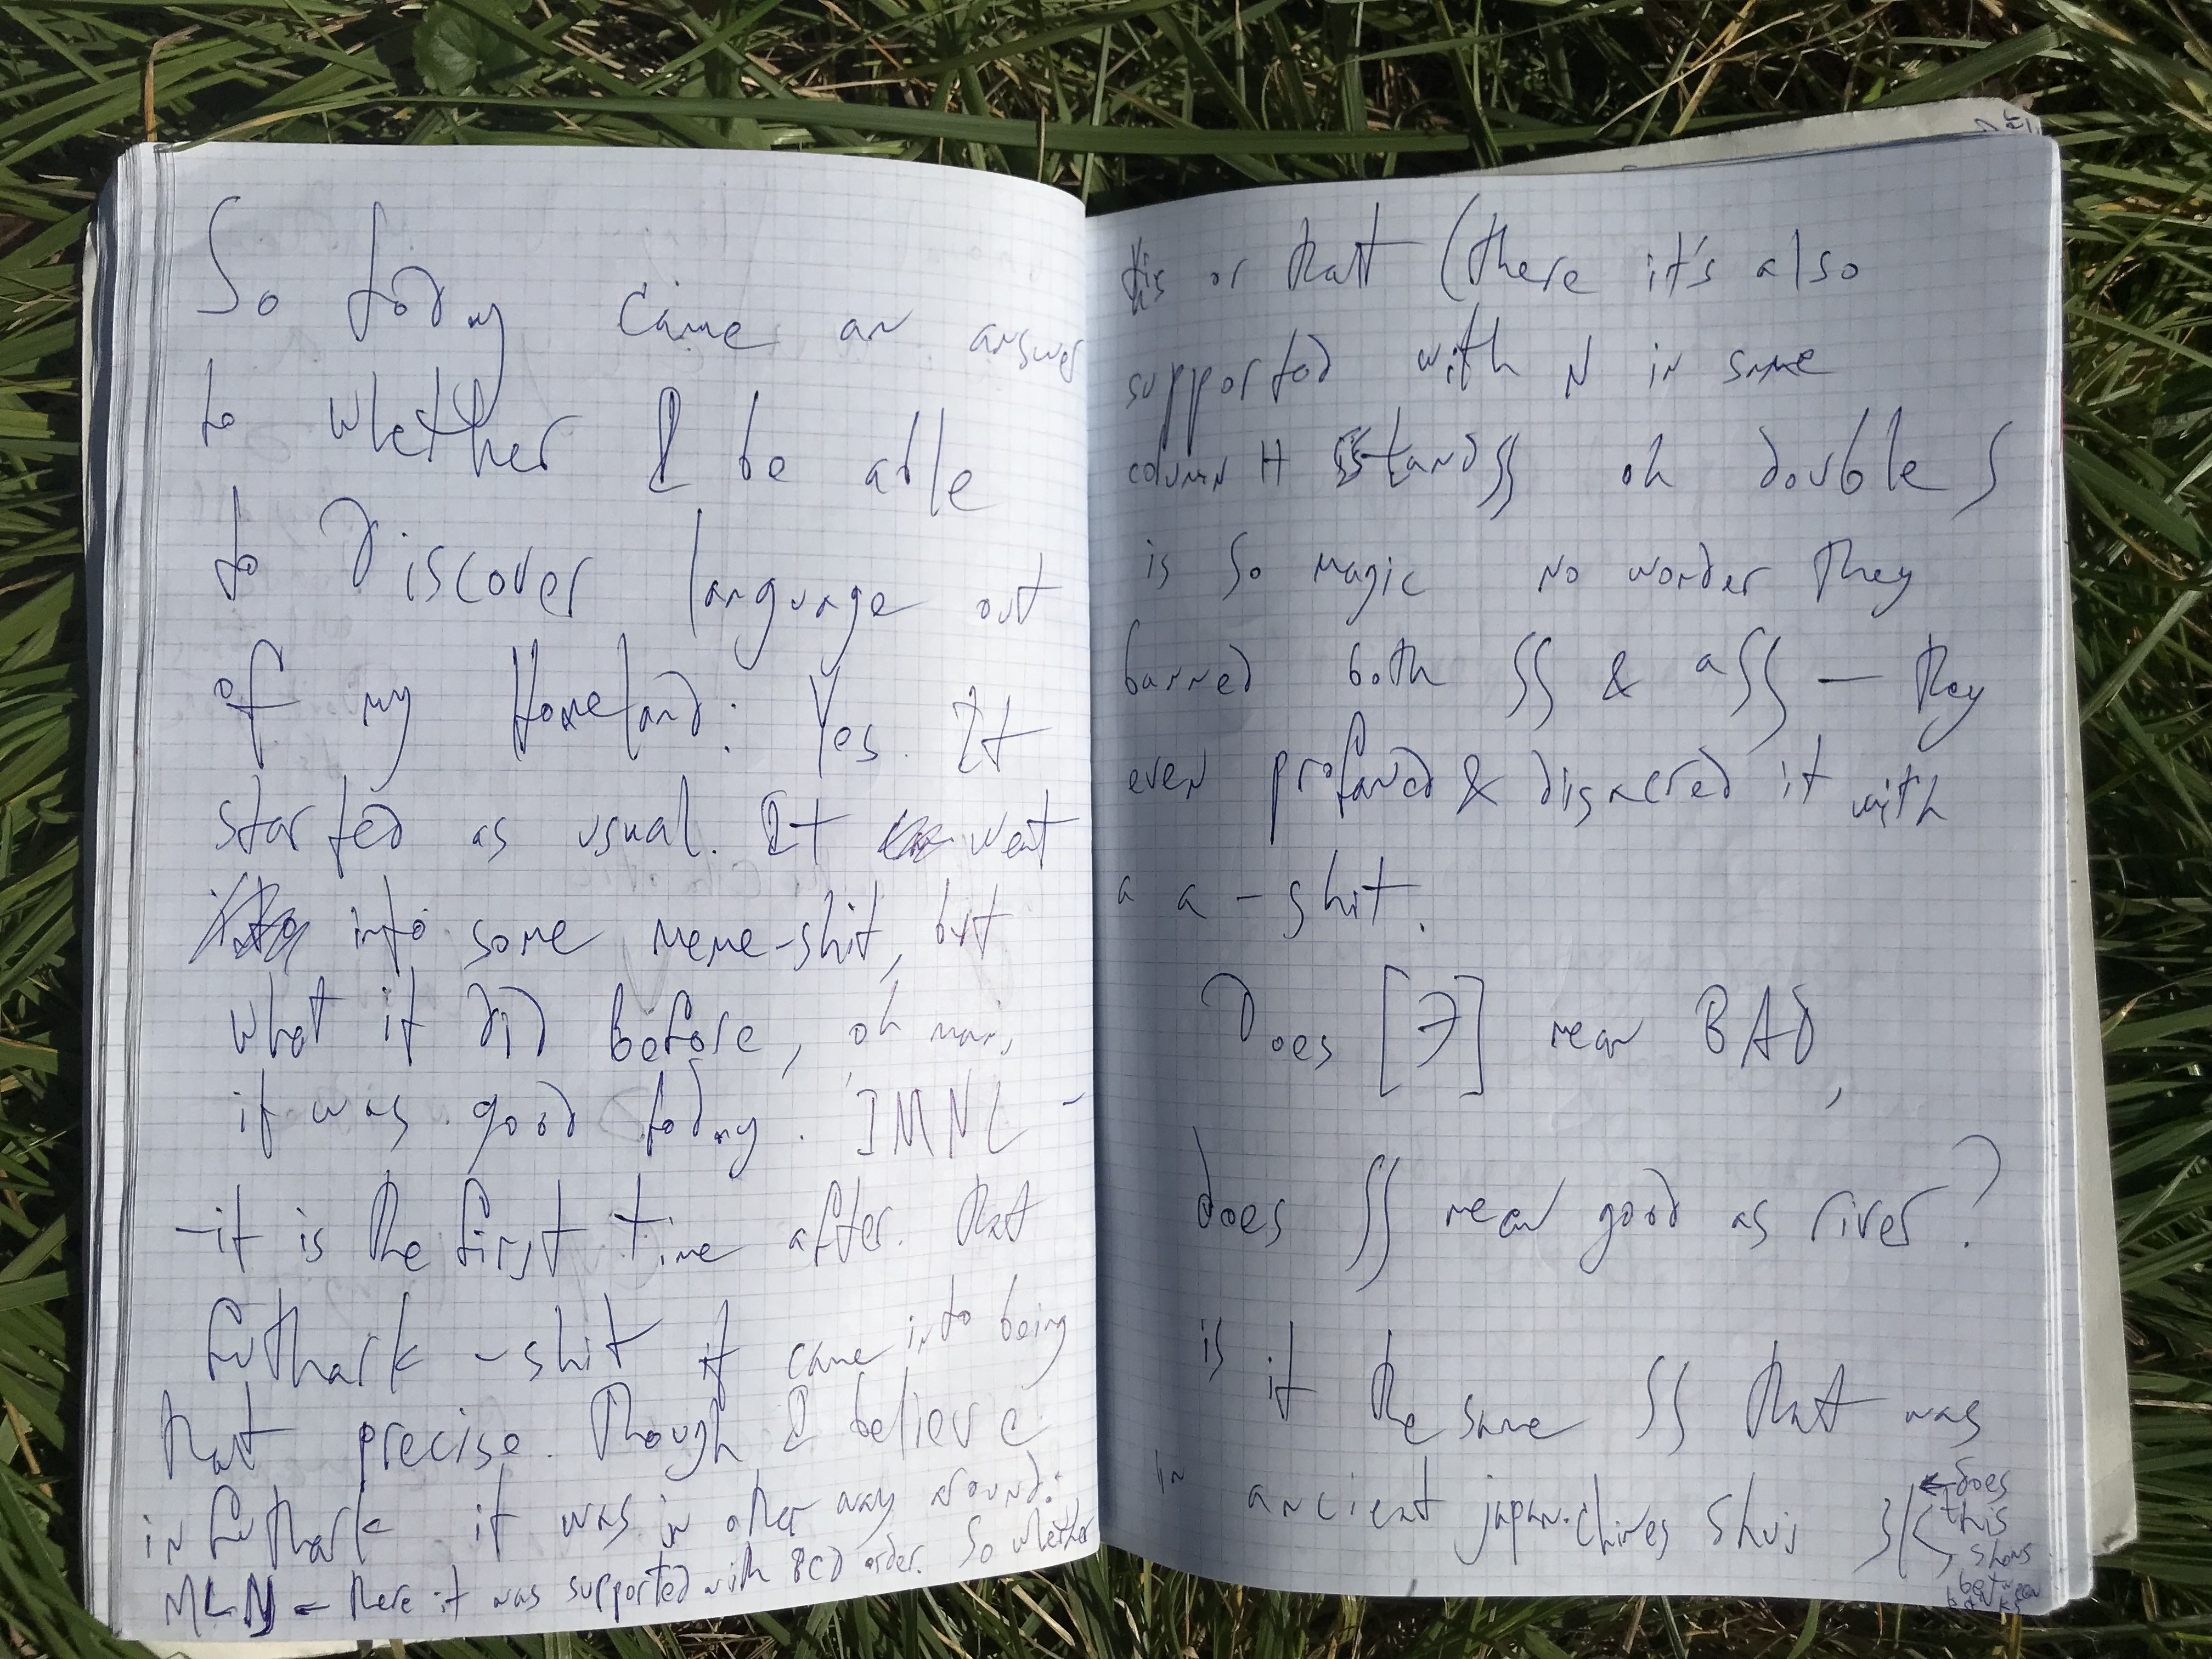 So today came an answer
to whether I be able
to Discover language out
of my Homeland: Yes. It
started as usual. It went
into some meme-shit, but
what it did before, oh man,
it was good today. IMNL -
it is the first time after that
futhark - shit It came into being
that precise. Though I believe
in futhark it was in other way around:
MLN - here it was supported with BCD order. So whether
this or that (there it's also
supported with N in same
column H stands oh double S
is so magic no wonder they
banned both SS & aSS — they
even profaned & disacred it with
a a - shit.
Does [Э] mean BAD,
does SS mean good as river?
is it the same SS that was
in ancient japan.chines shui
does
this
shas
between